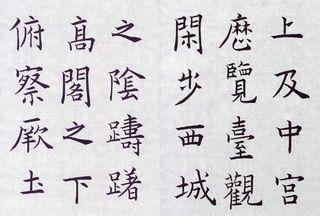 上及中宮
歷覽臺觀
閑步西城
之陰躊躇
高閣之下
俯察厥土